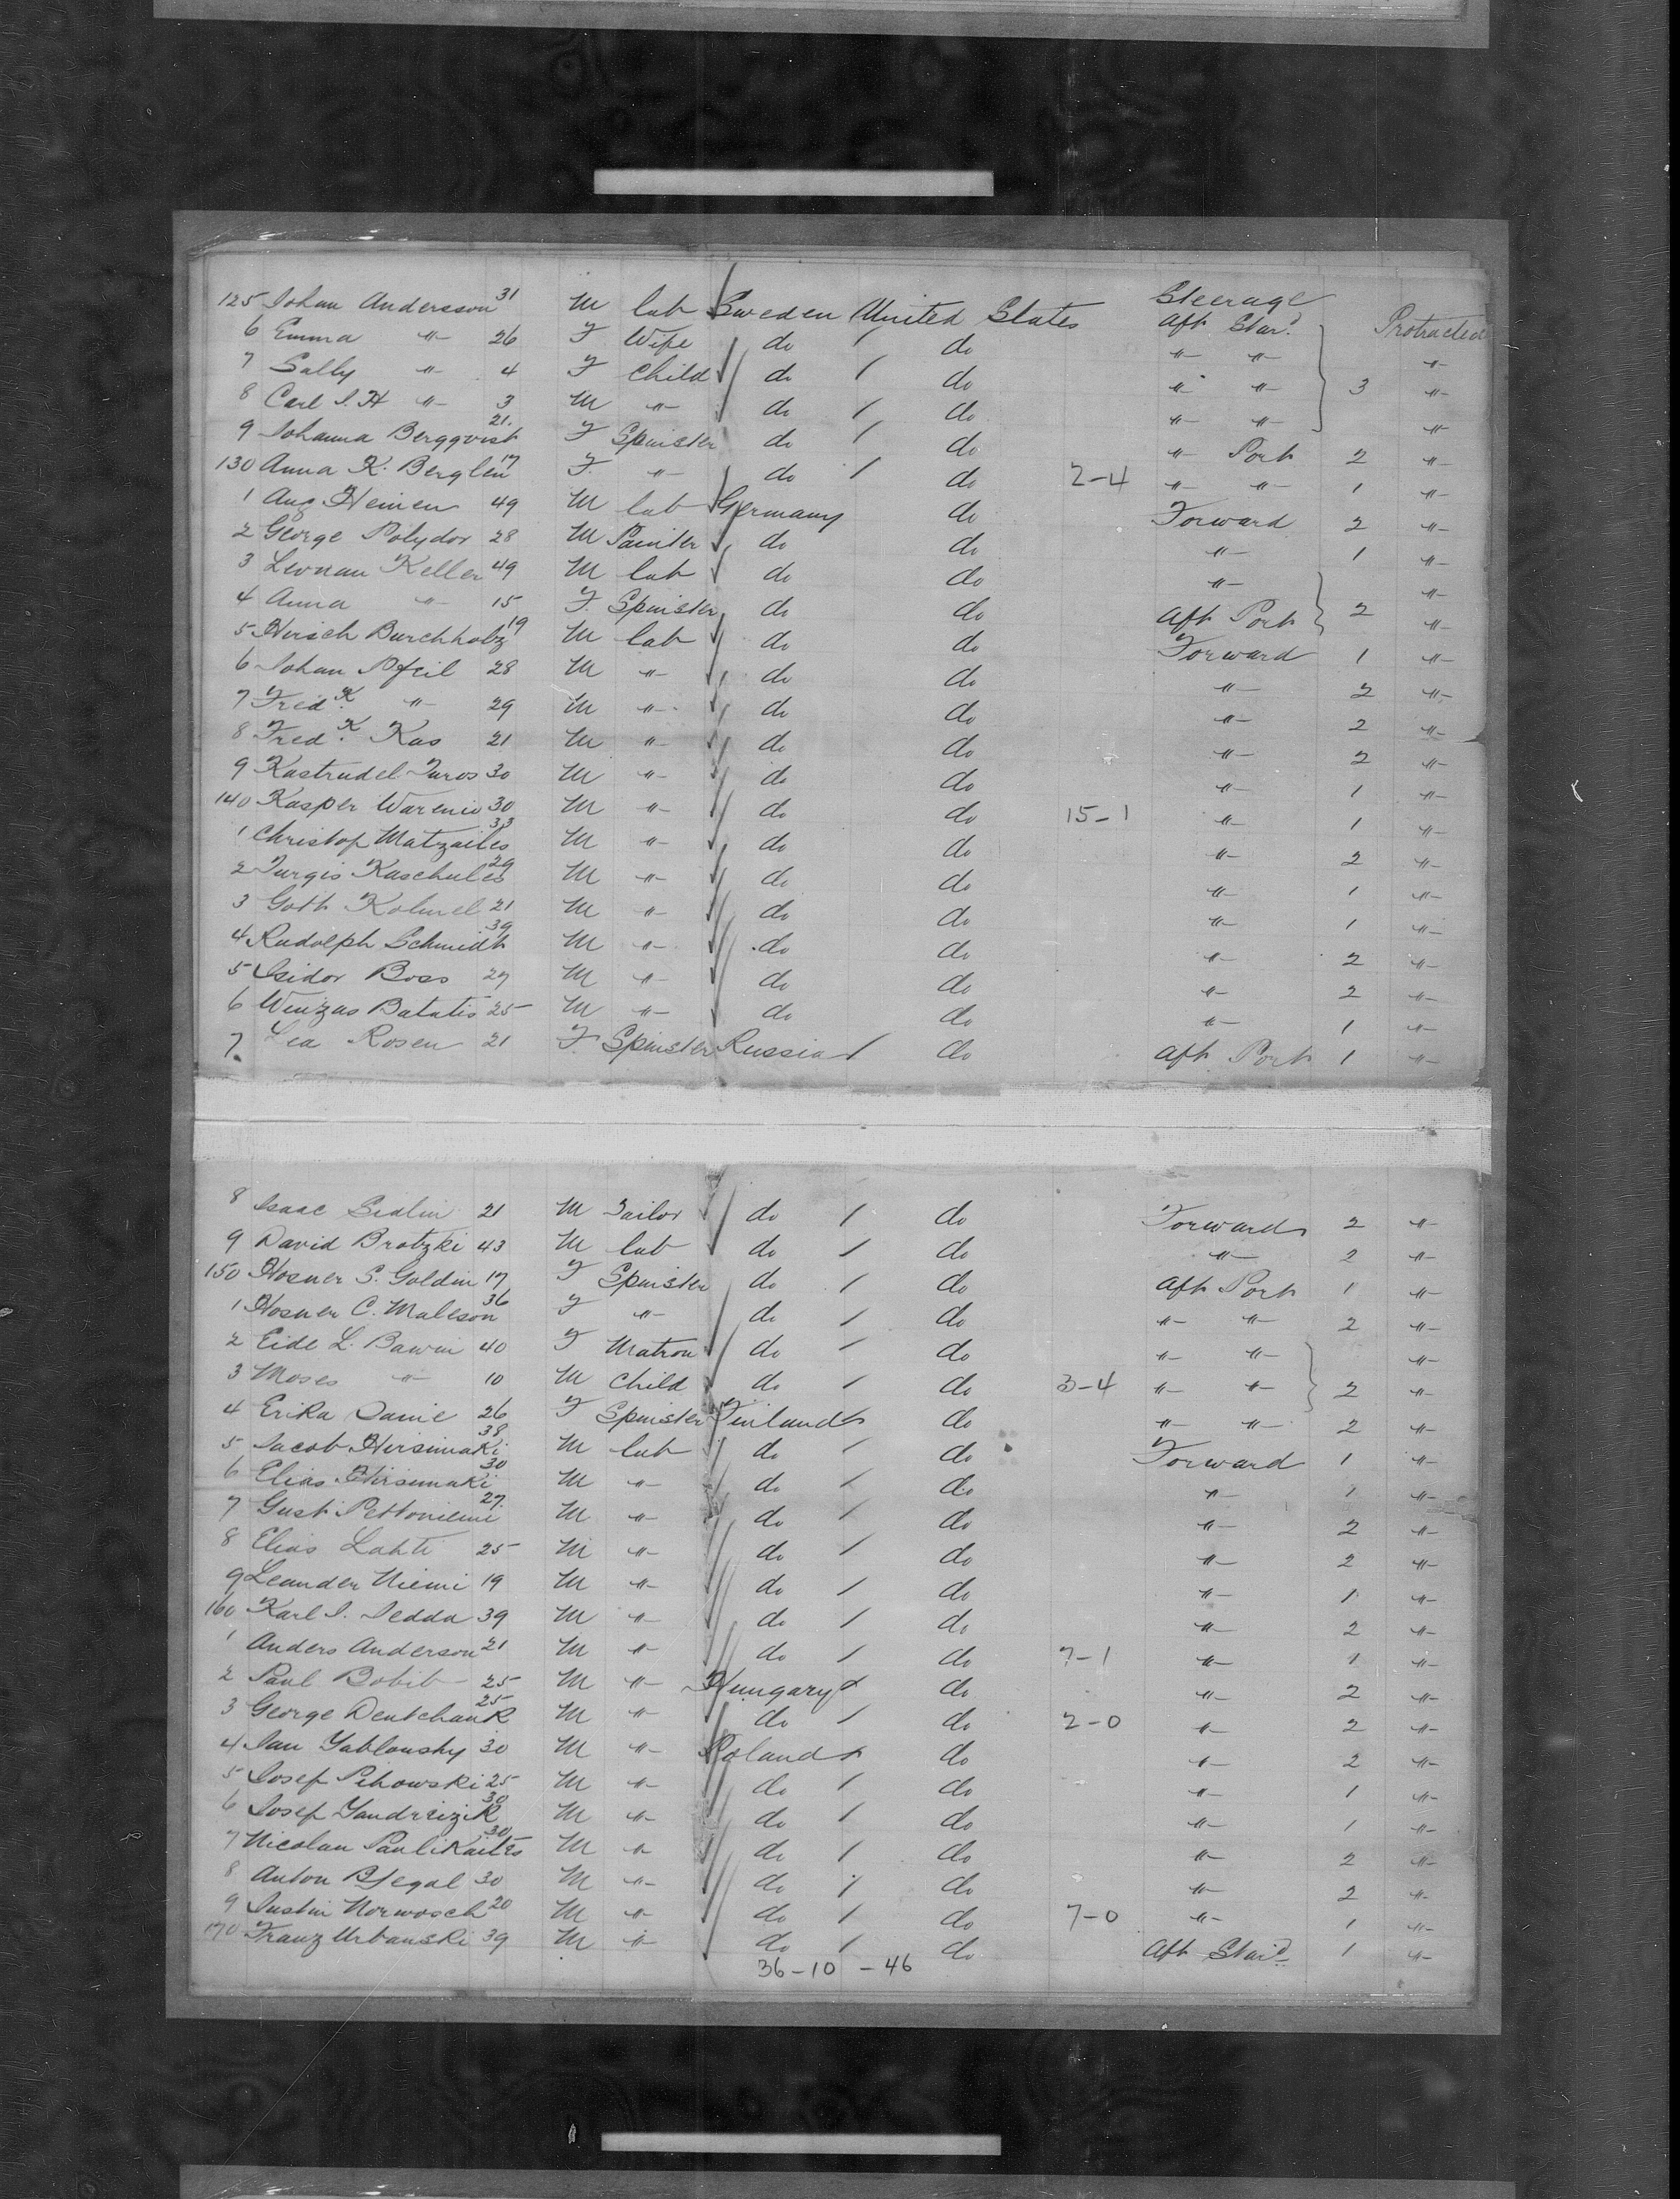 125 Johan Andersson 31 M lab Sweden United States Steerage Aft Star.d Protracted
6 Emma -"- 26 F Wife do / do -"- -"- -"-
7 Sally -"- 4 F Child do / do -"- -"- 3 -"-
8 Carl J. H -"- 3 M -"- do / do -"- -"- -"-
9 Johanna Bergqvist 21. F Spinster do / do -"- Port 2 -"-
130 Anna K. Berglen 17 F. -"- do / do 2-4 -"- -"- 1 -"-
1 Aug Heinen 49 M lab Germany do Forward 2 -"-
2 George Polydor 28 M Painter do do -"- 1 -"-
3 Leonau Keller 49 M lab do do -"- -"-
4 Anna -"- 15 F. Spinster do do Aft Port 2 -"-
5 Hirsch Burchholz 19 M lab do do Forward 1 -"-
6 Johan Pfeil 28 M -"- do do -"- 2 -"-
7 Fred.K -"- 29 M -"- do do -"- 2 -"-
8 Fred.K Kas 21 M -"- do do -"- 2 -"-
9 Kastrudel Juros 30 M -"- do do -"- 1 -"-
140 Kasper Warenio 30 M -"- do do 15-1 -"- 1 -"-
1 Christof Matzaites 33 M -"- do do -"- 2 -"-
2 Jurgis Kaschules 29 M -"- do do -"- 1 -"-
3 Goth Kolmel 21 M -"- do do -"- 1 -"-
4 Rudolph Schmidt 39 M -"- do do -"- 2 -"-
5 Isidor Boss 27 M -"- do do -"- 2 -"-
6 Winzas Batatis 25 M -"- do do -"- 1 -"-
7. Lea Rosen 21 F Spinster Russia / do Aft Port 1 -"-
8 Isaac Sialin 21 M Tailor do / do Forward 2 -"-
9 David Brotzki 43 M lab do / do -"- 2 -"-
150 Hosner S. Goldin 17 F Spinster do / do Aft Port 1 -"-
1 Hosner C. Maleson 36 F -"- do / do -"- -"- 2 -"-
2 Eide L. Bawin 40 F Matron do / do -"- -"- -"-
3 Moses -"- 10 M Child do / do 3-4 -"- -"- 2 -"-
4 Erika Danie 26 F Spinster Finland do -"- -"- 2 -"-
5 Jacob Hirsimaki 38 M lab do / do Forward 1 -"-
6 Elias Hirsimaki 30 M -"- do / do -"- 1 -"-
7 Gust Pettoniemi 27. M -"- do / do -"- 2 -"-
8 Elias Lahti 25 M -"- do / do -"- 2 -"-
9 Leander Niemi 19 M -"- do / do -"- 1 -"-
160 Karl J. Jedda 39 M -"- do / do -"- 2 -"-
1 Anders Anderson 21 M -"- do / do 7-1 -"- 1 -"-
2 Paul Bobib 25 M -"- Hungary do -"- 2 -"-
3 George Deutchank 25 M -"- do / do 2-0 -"- 2 -"-
4 Jan Yablonsky 30 M -"- Poland do -"- 2 -"-
5 Josef Pihowski 25 M -"- do / do -"- 1 -"-
6 Josef Yandrizik 30 M -"- do / do -"- 1 -"-
7 Nicolau Paulikaites 30 M -"- do / do -"- 2 -"-
8 Anton 30 M -"- do / do -"- 2 -"-
9 Justin Norwosch 20 M -"- do / do 7-0 -"- 1 -"-
170 Franz Urbanski 39 M -"- do / do Aft Star.d 1 -"-
36-10-46